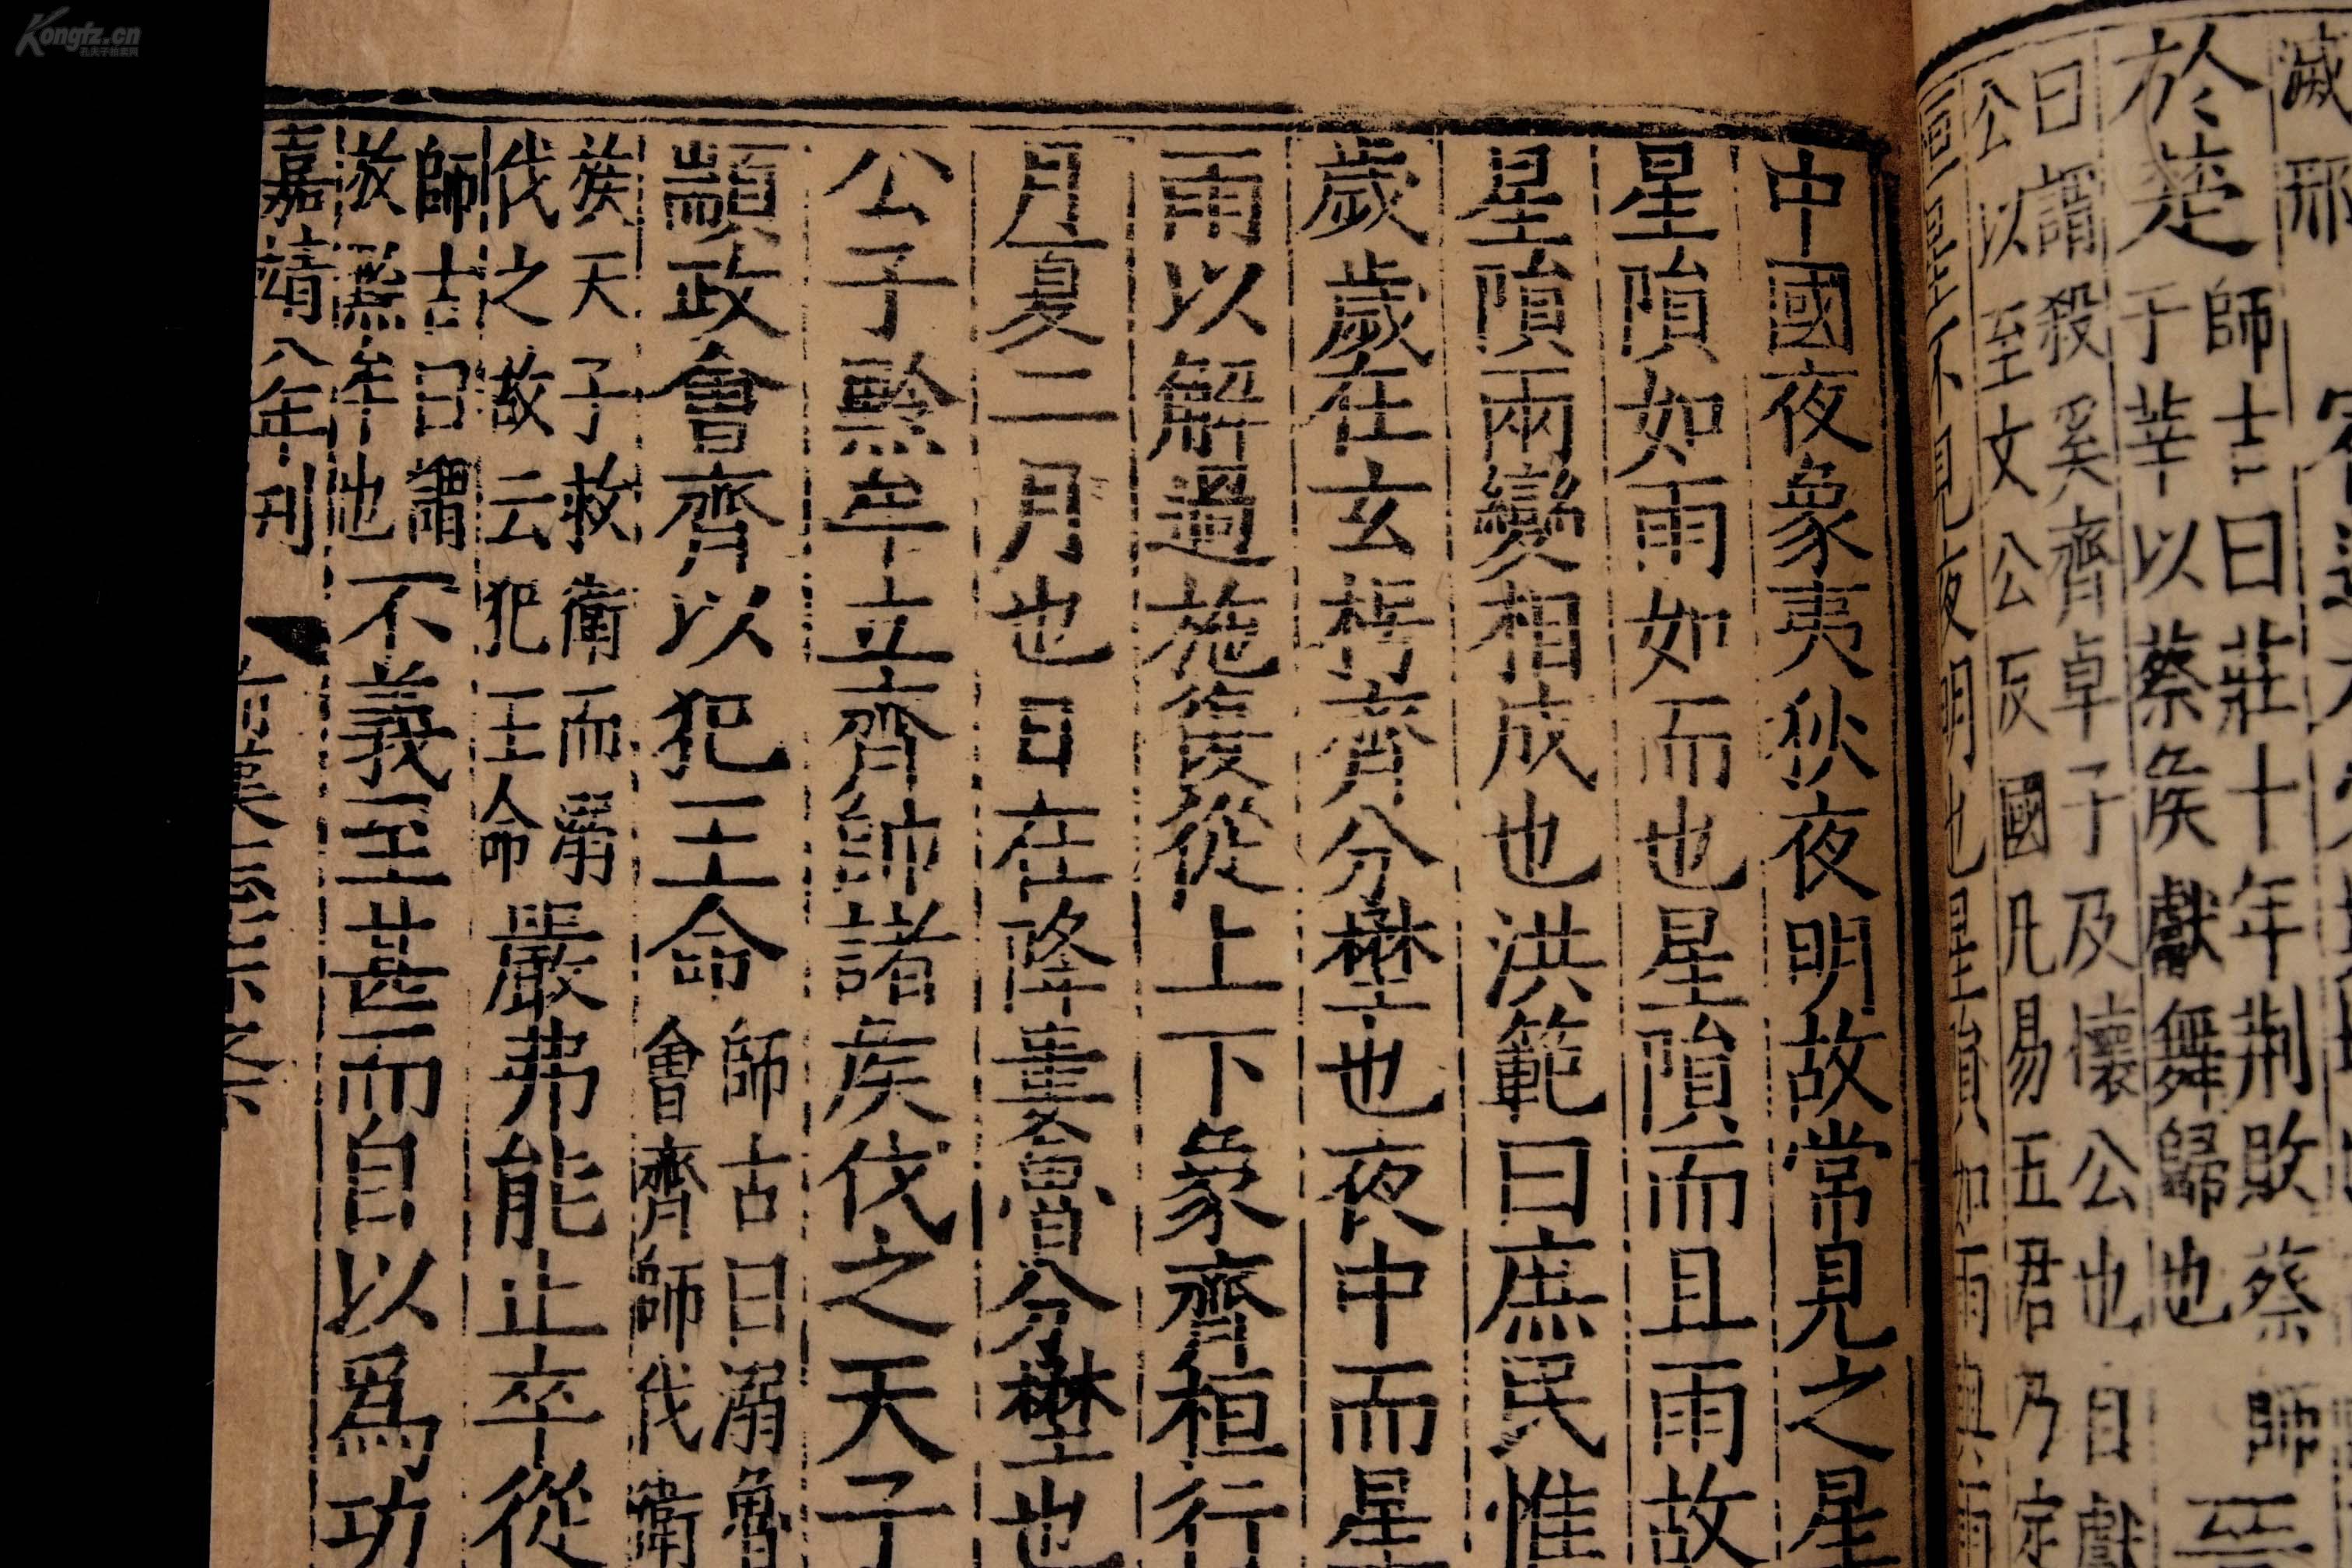 滅邢
於楚
師古曰莊十年荊敗蔡師
于莘以蔡矦獻舞歸也
晉
曰謂殺奚齊卓子及懷公也自獻
公以至文公反國凡易五君乃定
恒星不見夜明也星隕如雨與雨
中國夜象夷狄夜明故常見之星
星隕如雨如而也星隕而且雨故
星隕兩變相成也洪範曰庶民惟
歲歲在玄枵齊分壄也夜中而星
雨以解過施復從上下象齊桓行
月夏二月也日在降婁魯分壄也
公子黔牟立齊帥諸矦伐之天子
顓政會齊以犯王命
師古曰溺魯
會齊師伐衛
矦天子救衛而溺
伐之故云犯王命
嚴弗能止卒從
師古曰謂
放黔牟也
不義至甚而自以爲功
嘉靖八年刊
Kongfz.cn